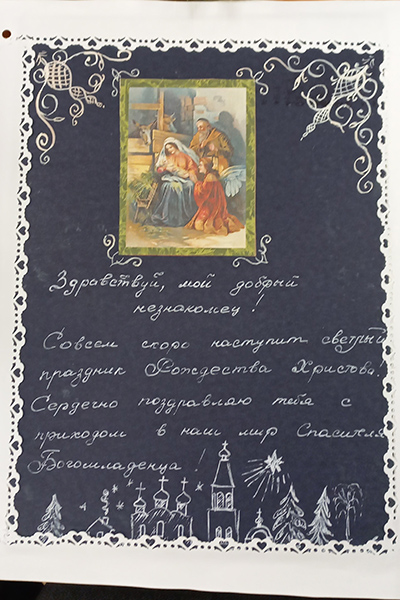 Здравствуй, мой добрый
незнакомец!
Совсем скоро наступит светлый
праздник Рождества Христова.
Сердечно поздравляю тебя с
приходом в наш мир Спасителя
Богомладенца!